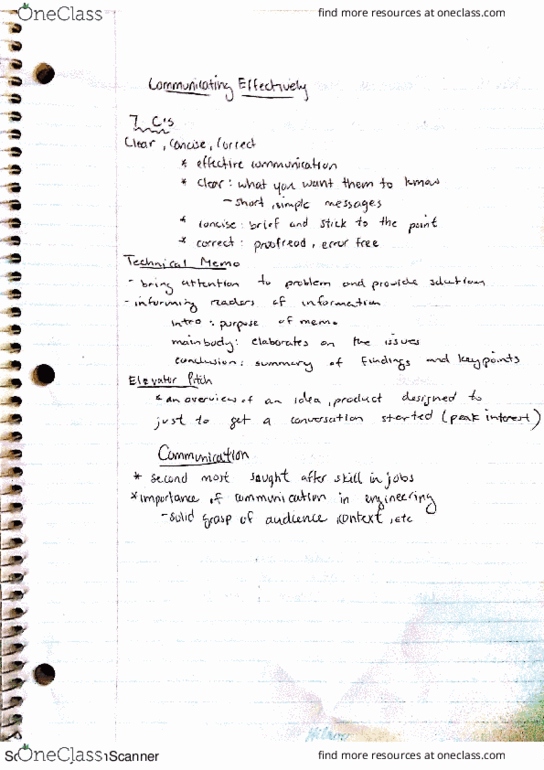 OneClass
find more resources at oneclass.com
Communicating Effectively
7 C's
Clear, Concise, Correct
* effective communication
* clear: what you want them to know
- short, simple messages
* concise: brief and stick to the point
* correct: proofread, error free
Technical Memo
- bring attention to problem and provide solution
- informing readers of information
intro: purpose of memo
mainbody: elaborates on the issues
conclusion: summary of findings and keypoints
Elevator Pitch
* an overview of an idea, product designed to
just to get a conversation started (peak interest)
Communication
* second most sought after skill in jobs
* importance of communication in engineering
- solid grasp of audience context, etc
Hilroy
OneClass Scanner
find more resources at oneclass.com